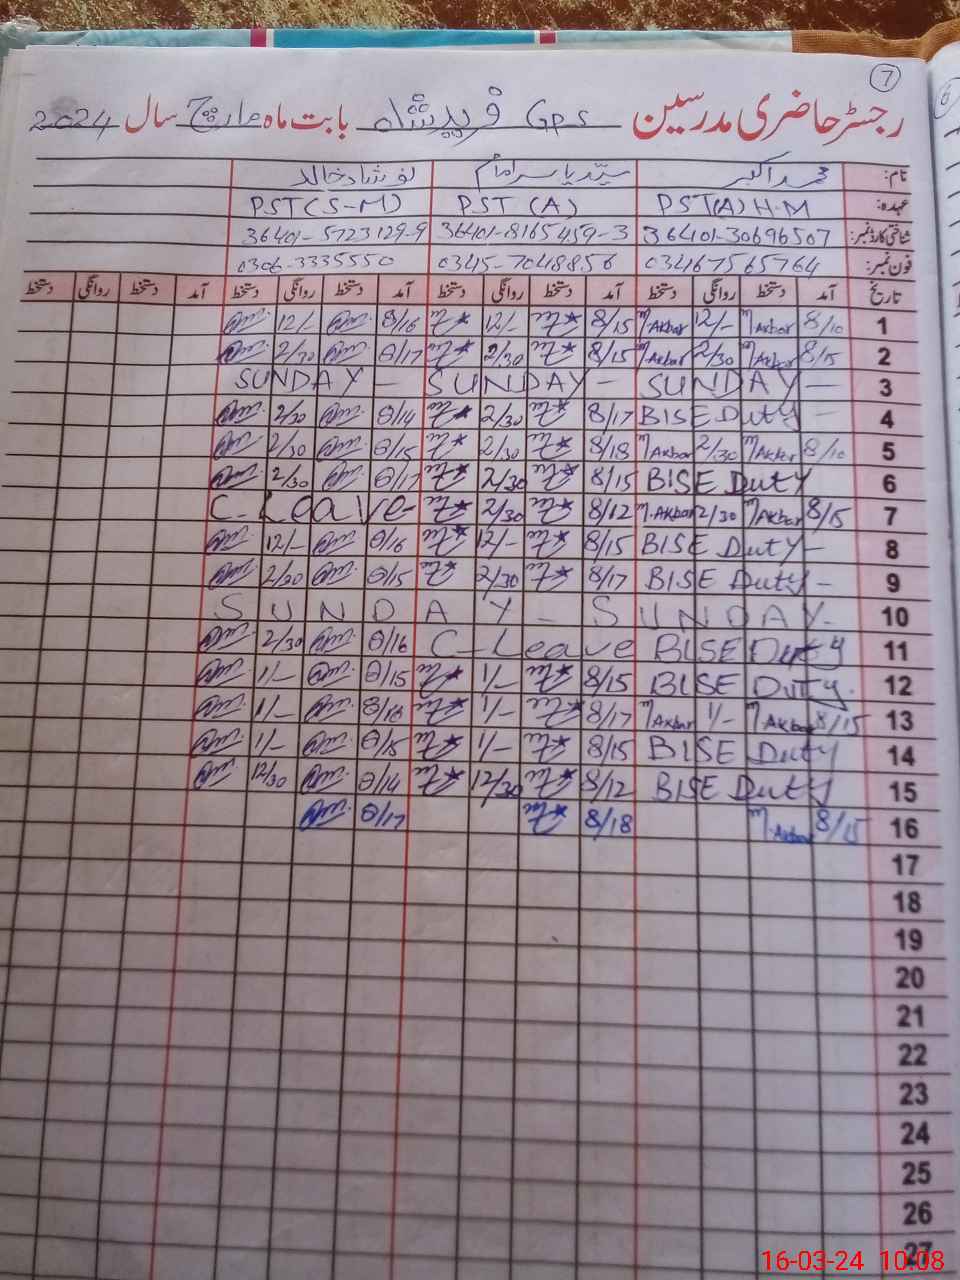 7
رجسٹر حاضری مدرسین GPS فرید شاہ بابت ماہ مارچ سال 2024
نام: محمد اکبر سید یاسر امام نوشاد خالد
عہدہ: PST(A) H.M PST (A) PST(S-M)
شناختی کارڈ نمبر: 36401-30696507 36401-8165459-3 36401-5723129-9
فون نمبر: 03467565764 0345-7048856 0306-3335550
تاریخ آمد دستخط روانگی دستخط آمد دستخط روانگی دستخط آمد دستخط روانگی دستخط آمد دستخط روانگی دستخط
1 8/10 M Akbar 12/- M Akbar 8/15 12/- 8/16 12/-
2 8/15 M Akbar 2/30 M Akbar 8/15 2/30 8/17 2/30
3 SUNDAY — SUNDAY — SUNDAY —
4 BISE Duty — 8/17 2/30 8/14 2/30
5 8/10 M Akbar 2/30 M Akbar 8/18 2/30 8/15 2/30
6 BISE Duty 8/15 2/30 8/17 2/30
7 8/15 M Akbar 2/30 M. Akbar 8/12 2/30 C. Leave-
8 BISE Duty — 8/15 12/- 8/16 12/-
9 BISE Duty — 8/17 2/30 8/15 2/30
10 SUNDAY - SUNDAY.
11 BISE Duty C-Leave 8/16 2/30
12 BISE Duty. 8/15 1/- 8/15 1/-
13 8/15 M Akbar 1/- M Akbar 8/17 1/- 8/18 1/-
14 BISE Duty 8/15 1/- 8/15 1/-
15 BISE Duty 8/12 12/30 8/14 12/30
16 8/15 M. Akbar 8/18 8/17
17
18
19
20
21
22
23
24
25
26
27
16-03-24 10:08